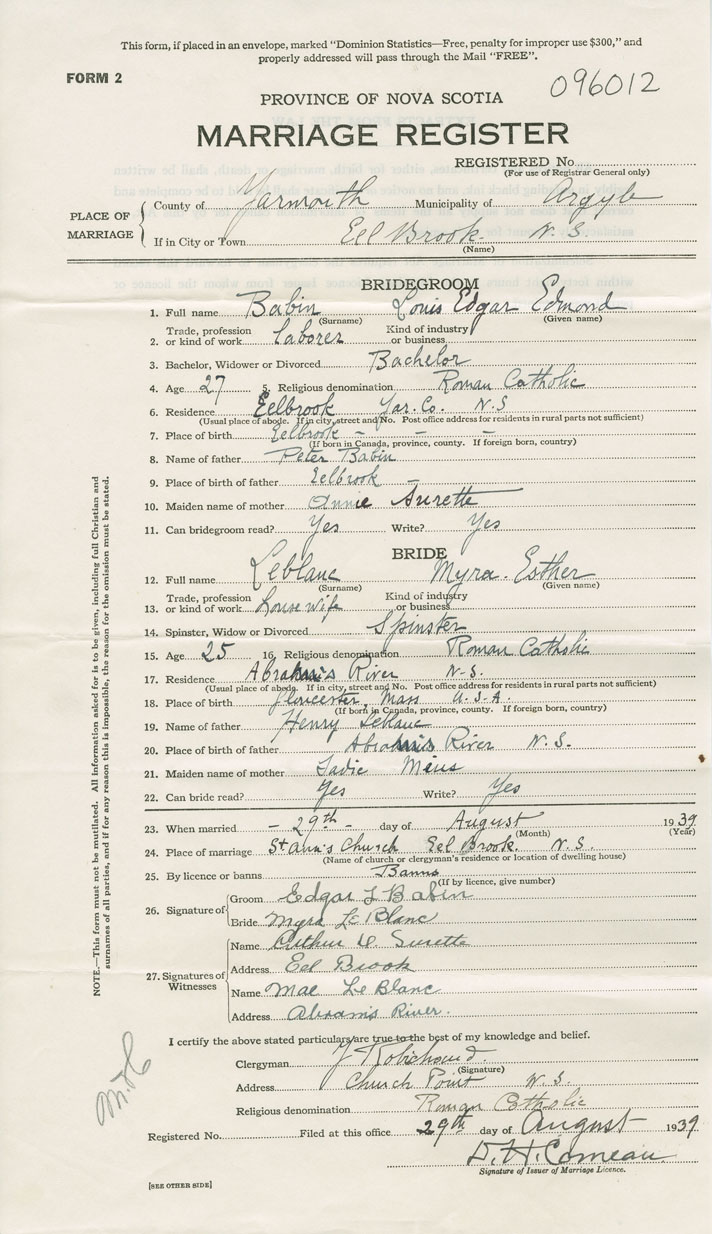 This form, if placed in an envelope, marked "Dominion Statistics—Free, penalty for improper use $300," and
properly addressed will pass through the Mail "FREE".
FORM 2
096012
PROVINCE OF NOVA SCOTIA
MARRIAGE REGISTER
REGISTERED No.
(For use of Registrar General only)
PLACE OF MARRIAGE
County of Yarmouth Municipality of Argyle
If in City or Town Eel Brook N. S.
(Name)
BRIDEGROOM
1. Full name Babin Louis Edgar Edmond
(Surname) (Given name)
2. Trade, profession or kind of work laborer Kind of industry or business
3. Bachelor, Widower or Divorced Bachelor
4. Age 27 5. Religious denomination Roman Catholic
6. Residence Eelbrook Yar. Co. N. S
(Usual place of abode. If in city, street and No. Post office address for residents in rural parts not sufficient)
7. Place of birth Eelbrook - - -
(If born in Canada, province, county. If foreign born, country)
8. Name of father Peter Babin
9. Place of birth of father Eelbrook -
10. Maiden name of mother Annie Surette
11. Can bridegroom read? Yes Write? Yes
BRIDE
12. Full name Leblanc Myra Esther
(Surname) (Given name)
13. Trade, profession or kind of work housewife Kind of industry or business
14. Spinster, Widow or Divorced Spinster
15. Age 25 16. Religious denomination Roman Catholic
17. Residence Abrahms River N. S.
(Usual place of abode. If in city, street and No. Post office address for residents in rural parts not sufficient)
18. Place of birth Gloucester, Mass U. S. A.
(If born in Canada, province, county. If foreign born, country)
19. Name of father Henry Leblanc
20. Place of birth of father River N. S.
21. Maiden name of mother Sadie Meus
22. Can bride read? Yes Write? Yes
23. When married - 29th - day of August 1939
(Month) (Year)
24. Place of marriage St Ann's Church Eel Brook. N. S.
(Name of church or clergyman's residence or location of dwelling house)
25. By licence or banns Banns
(If by licence, give number)
26. Signature of
Groom Edgar L Babin
Bride Myra Le Blanc
27. Signatures of Witnesses
Name Arthur Surette
Address Eel Brook
Name Mae Le Blanc
Address Abrams River.
I certify the above stated particulars are true to the best of my knowledge and belief.
Clergyman Robichaud
(Signature)
Address Church Point N. S.
Religious denomination Roman Catholic
Registered No. Filed at this office 29th day of August 1939
D. H. Comeau
Signature of Issuer of Marriage Licence.
[SEE OTHER SIDE]
NOTE.—This form must not be mutilated. All information asked for is to be given, including full Christian and
surnames of all parties, and if for any reason this is impossible, the reason for the omission must be stated.